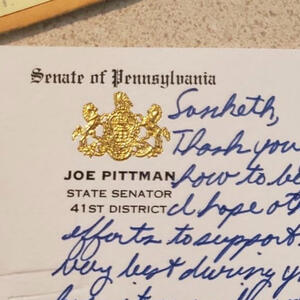 Senate of Pennsylvania
JOE PITTMAN
STATE SENATOR
41ST DISTRICT
Sanketh,
Thank you
how to be
I hope ot
efforts to support
very best during y